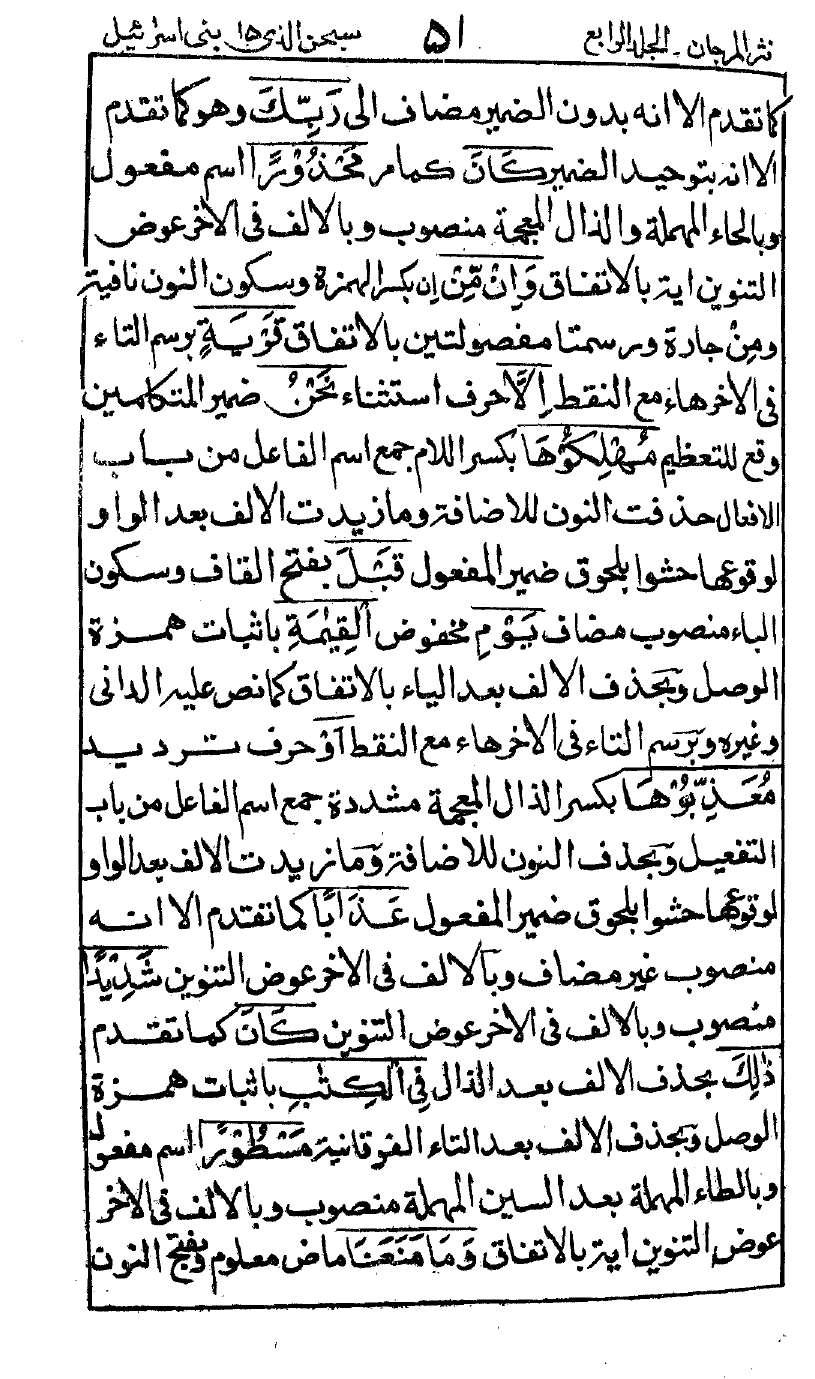 نثر المرجان - الجلد الرابع ۵۱ سبحن الذی ۱۵ بنی اسرائیل
کما تقدم الا انه بدون الضمیر مضاف الی رَبِّكَ وهو کما تقدم
الا انه بتوحید الضمیر كَانَ کما مر مَحْذُوْرًا اسم مفعول
وبالحاء المهملة والذال المعجمة منصوب وبالالف فی الاخر عوض
التنوین ایة بالاتفاق وَاِنْ مِّنْ اِن بکسر الهمزة وسکون النون نافیة
ومِنْ جارة ورسمتا مفصولتین بالاتفاق قَرْیَةٍ برسم التاء
فی الاخر هاء مع النقط اِلَّا حرف استثناء نَحْنُ ضمیر المتکلمین
وقع للتعظیم مُهْلِكُوْهَا بکسر اللام جمع اسم الفاعل من باب
الافعال حذفت النون للاضافة وما زیدت الالف بعد الواو
لوقوعها حشوا بلحوق ضمیر المفعول قَبْلَ بفتح القاف وسکون
الباء منصوب مضاف یَوْمِ مخفوض الْقِیٰمَةِ باثبات همزة
الوصل وبحذف الالف بعد الیاء بالاتفاق کما نص علیه الدانی
وغیره وبرسم التاء فی الاخر هاء مع النقط اَوْ حرف تردید
مُعَذِّبُوْهَا بکسر الذال المعجمة مشددة جمع اسم الفاعل من باب
التفعیل وبحذف النون للاضافة وما زیدت الالف بعد الواو
لوقوعها حشوا بلحوق ضمیر المفعول عَذَابًا کما تقدم الا انه
منصوب غیر مضاف وبالالف فی الاخر عوض التنوین شَدِیْدًا
منصوب وبالالف فی الاخر عوض التنوین كَانَ کما تقدم
ذٰلِكَ بحذف الالف بعد الذال فِی الْكِتٰبِ باثبات همزة
الوصل وبحذف الالف بعد التاء الفوقانیة مَسْطُوْرًا اسم مفعول
وبالطاء المهملة بعد السین المهملة منصوب وبالالف فی الاخر
عوض التنوین ایة بالاتفاق وَمَا مَنَعَنَا ماض معلوم وبفتح النون